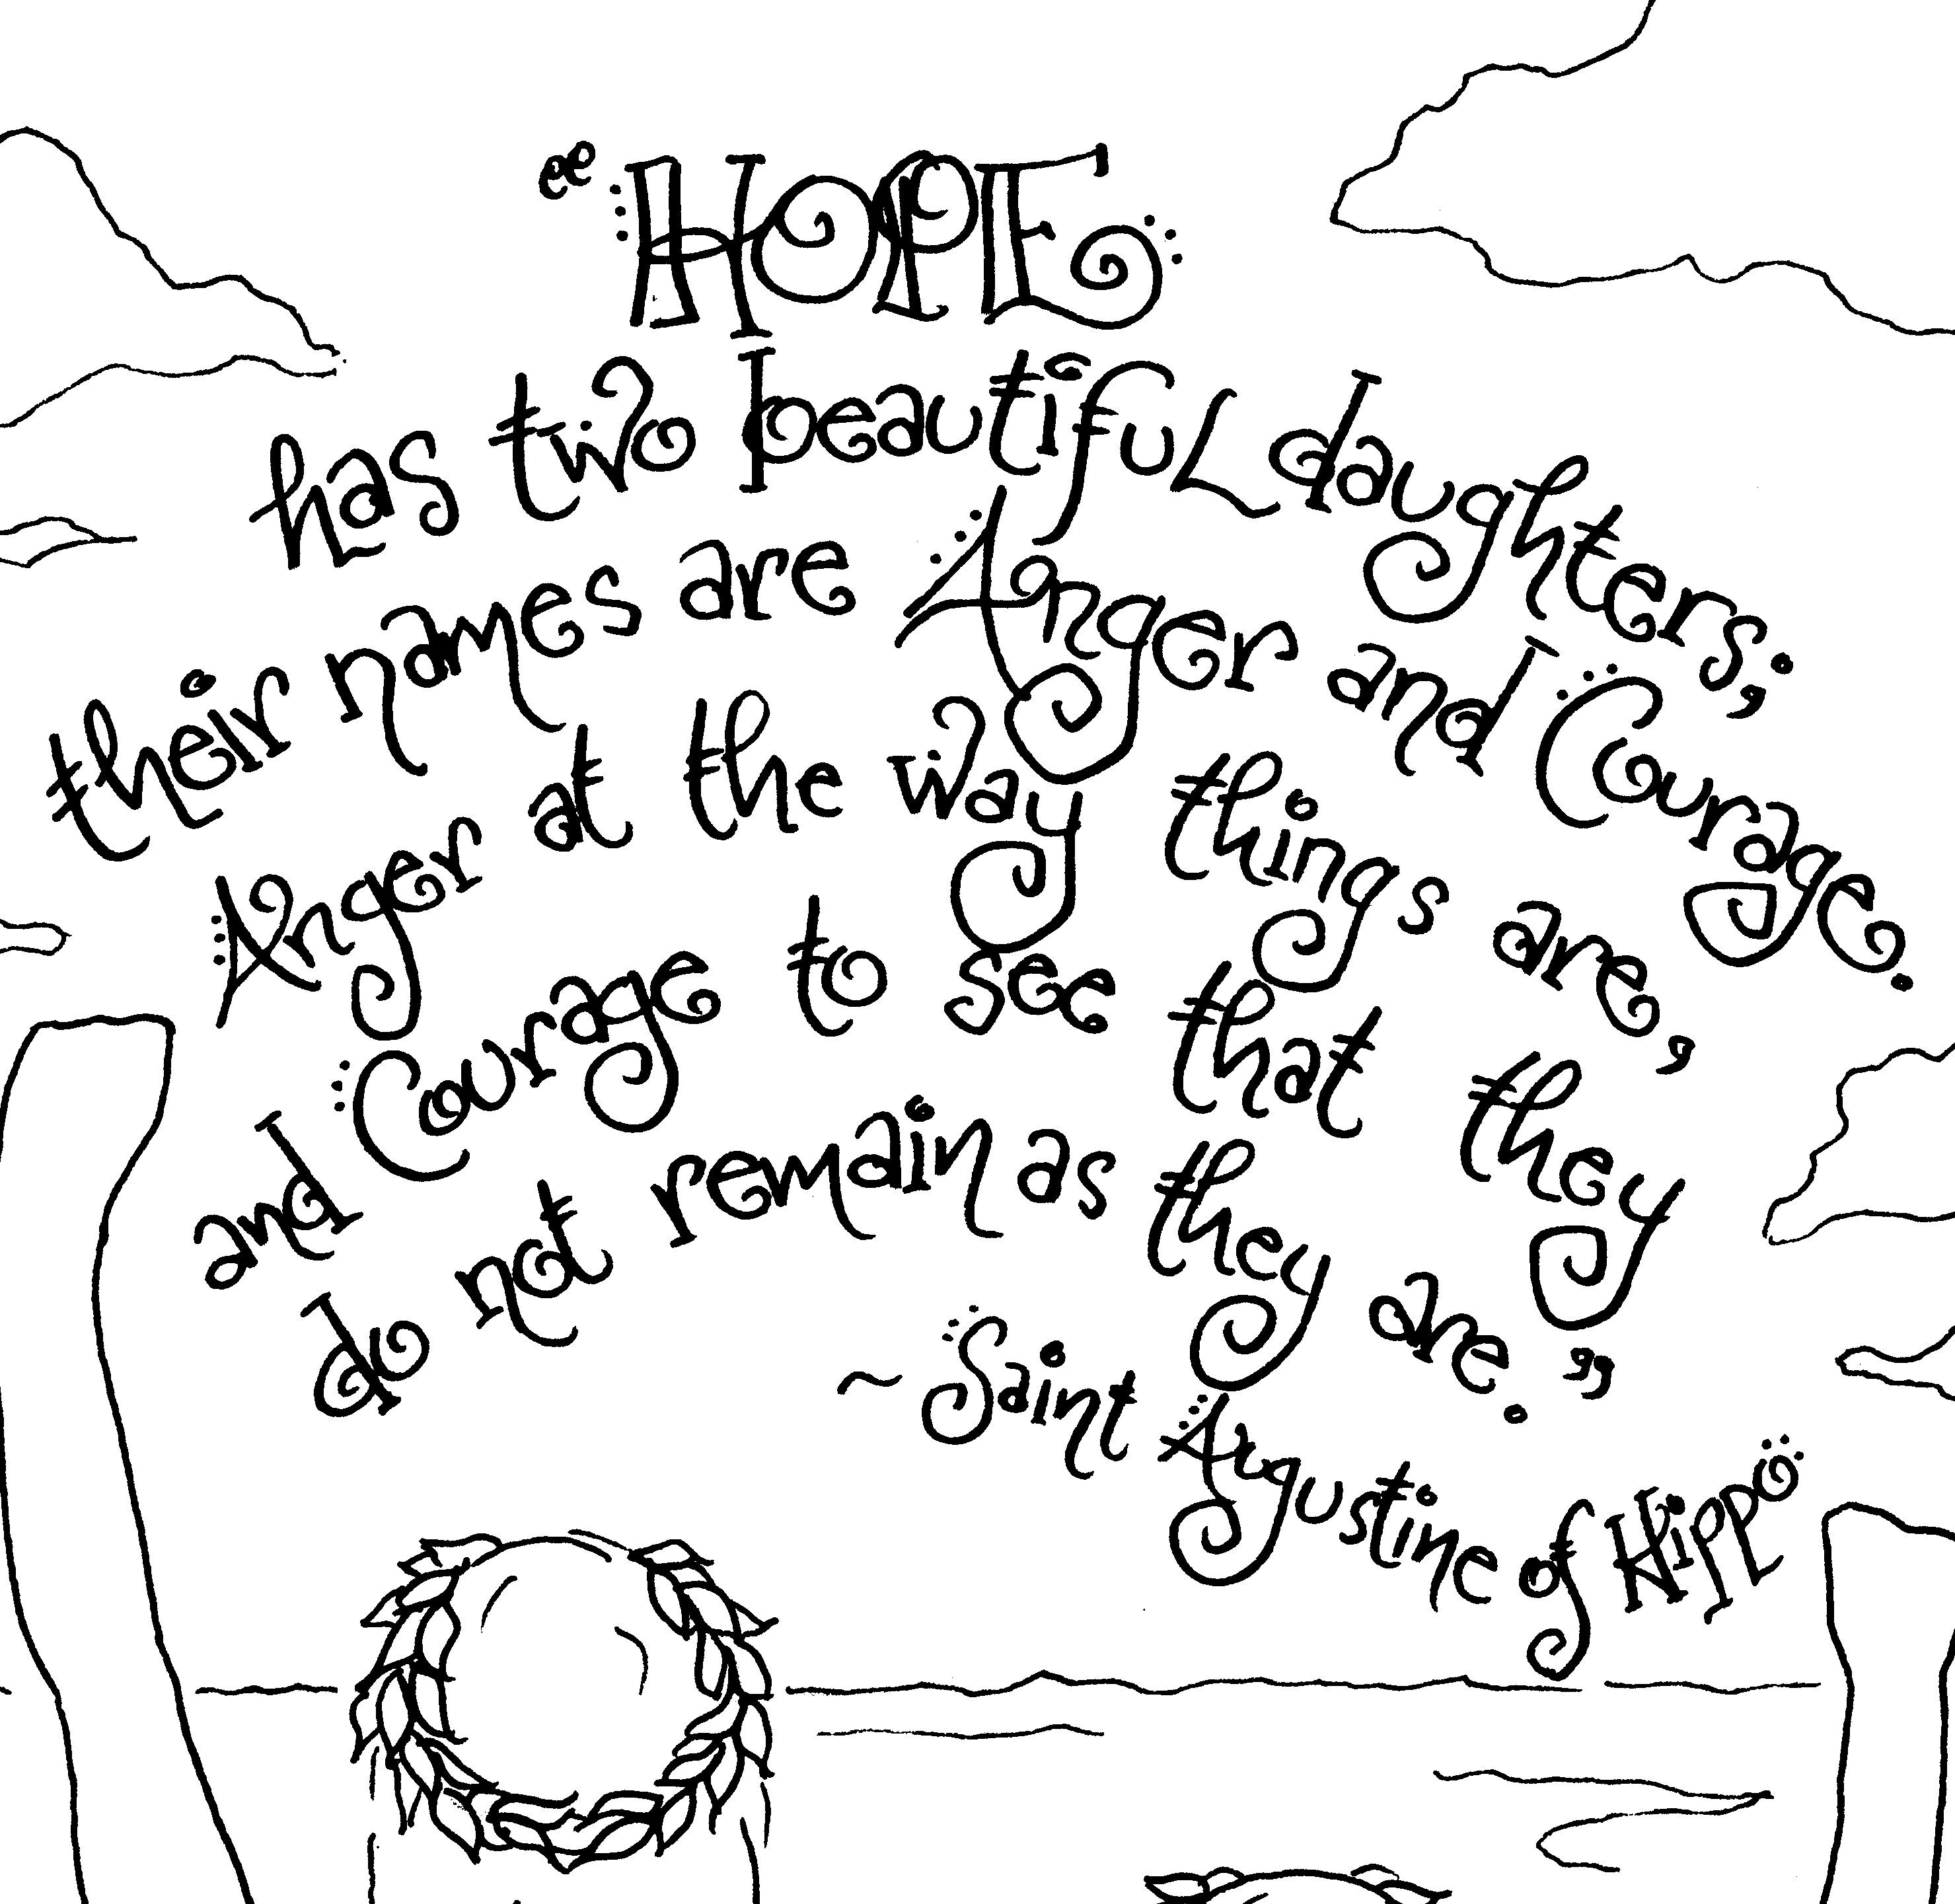 “HOPE
has two beautiful daughters;
their names are Anger and Courage.
Anger at the way things are,
and Courage to see that they
do not remain as they are.”
~Saint Augustine of Hippo